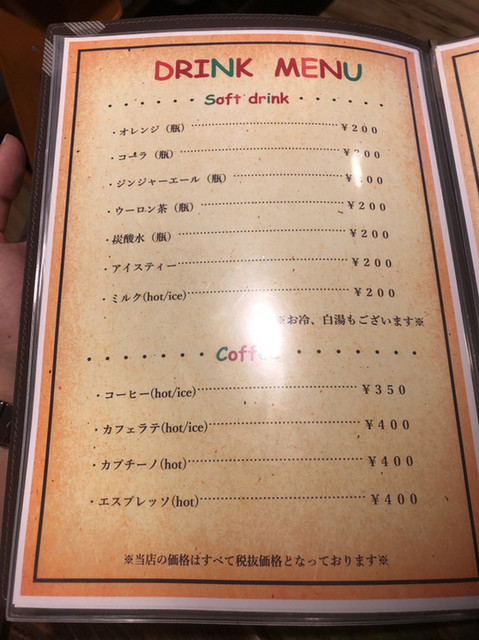 DRINK MENU
・・・・・・ Soft drink ・・・・・・
・オレンジ（瓶）……………………￥２００
・コーラ（瓶）……………………￥２００
・ジンジャーエール（瓶）………………￥２００
・ウーロン茶（瓶）……………………￥２００
・炭酸水（瓶）……………………￥２００
・アイスティー……………………￥２００
・ミルク(hot/ice)……………………￥２００
※お冷、白湯もございます※
・・・・・・・ Coffee ・・・・・・・
・コーヒー(hot/ice)……………………￥３５０
・カフェラテ(hot/ice)……………………￥４００
・カプチーノ(hot)……………………￥４００
・エスプレッソ(hot)……………………￥４００
※当店の価格はすべて税抜価格となっております※